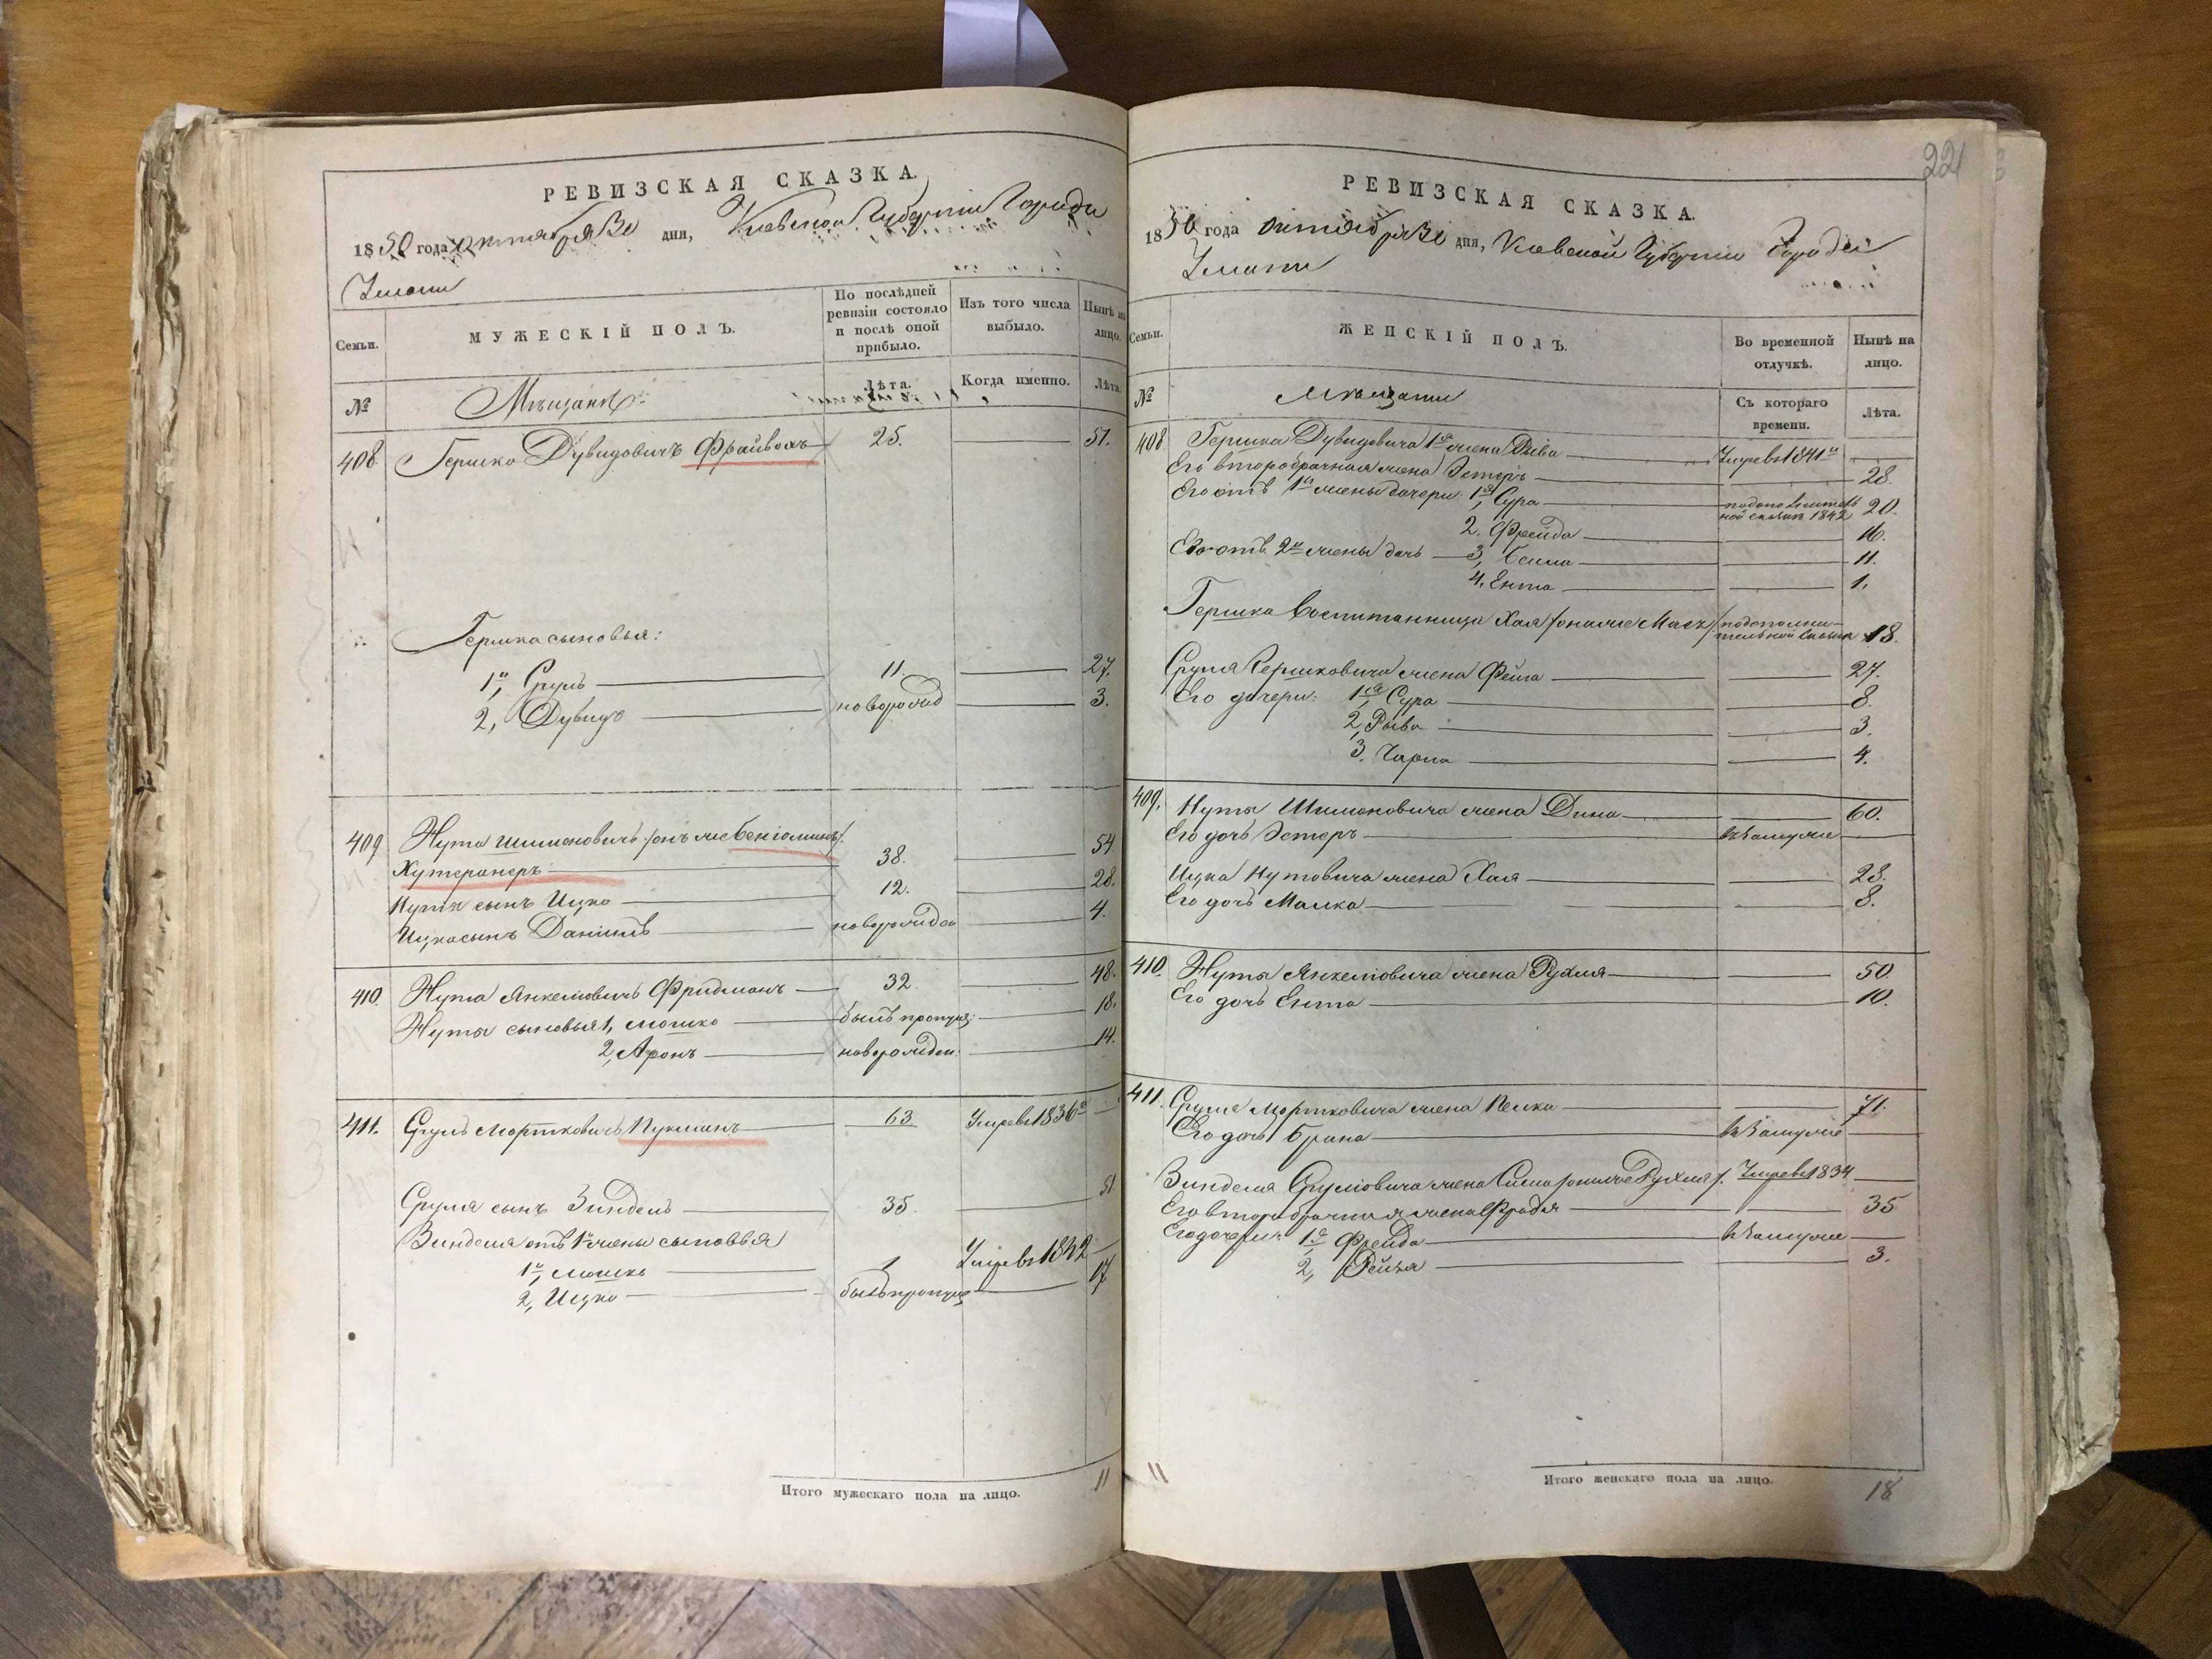 РЕВИЗСКАЯ СКАЗКА.
1850 года октября 30 дня, Киевской Губернии Города
Умани
Семьи.
МУЖЕСКІЙ ПОЛЪ.
По послѣдней ревизіи состояло и послѣ оной прибыло.
Изъ того числа выбыло.
Нынѣ на лицо.
№
Мѣщане:
Лѣта.
Когда именно.
Лѣта.
408. Гершко Дувидовичъ Фрайвахъ 25. 51.
Гершка сыновья:
1й, Сруль 11. 27.
2, Дувидъ новорожд 3.
409 Нута Шимоновичъ /онъ же Беніоминъ/.
Хутеранеръ 38. 54
Нуты сынъ Ицко 12. 28.
Ицка сынъ Даніилъ новорожден 4.
410. Нута Янкеліовичъ Фридманъ 32. 48.
Нуты сыновья 1, Мошко былъ пропущ: 18.
2, Аронъ новорожден: 14.
411. Сруль Мортковичъ Пукманъ 63 Умре въ 1836м
Сруля сынъ Зиндель 35. 51
Зинделя отъ 1й жены сыновья
1й, Мошко 1 Умре въ 1842
2, Ицко былъ пропущ 17
Итого мужескаго пола на лицо. 11
221
РЕВИЗСКАЯ СКАЗКА.
1850 года октября 30 дня, Киевской Губернии Города
Умани
Семьи.
ЖЕНСКІЙ ПОЛЪ.
Во временной отлучкѣ.
Нынѣ на лицо.
№
Мѣщане
Съ котораго времени.
Лѣта.
408 Гершка Дувидовича 1я жена Рыва Умре въ 1841м
Его второбрачная жена Эстеръ 28.
Его отъ 1й жены дочери: 1я, Сура по дополнитель
ной сказкѣ 1842 20.
2. Фрейда 16.
Его отъ 2й жены дочь 3, Бсима 11.
4, Ента 1.
Гершка воспитанница Хая /она же Мася/ по дополни-
тельной сказкѣ 18.
Сруля Гершковича жена Фейга 27.
Его дочери: 1я, Сура 8.
2, Рыва 3.
3. Чарна 4.
409. Нуты Шимоновича жена Дина 60.
Его дочь Эстеръ въ замужіе
Ицка Нутовича жена Хая 28.
Его дочь Малка 8.
410. Нуты Янкеліовича жена Рухля 50
Его дочь Ента 10.
411. Сруля Мортковича жена Песка 71.
Его дочь Брана въ замужіе
Зинделя Сруліовича жена Сима /она же Рухля/. Умре въ 1834
Его второбрачная жена Фрадя 35
Его дочери: 1я, Фрейда въ замужіе
2, Рейзя 3.
11
Итого женскаго пола на лицо. 18